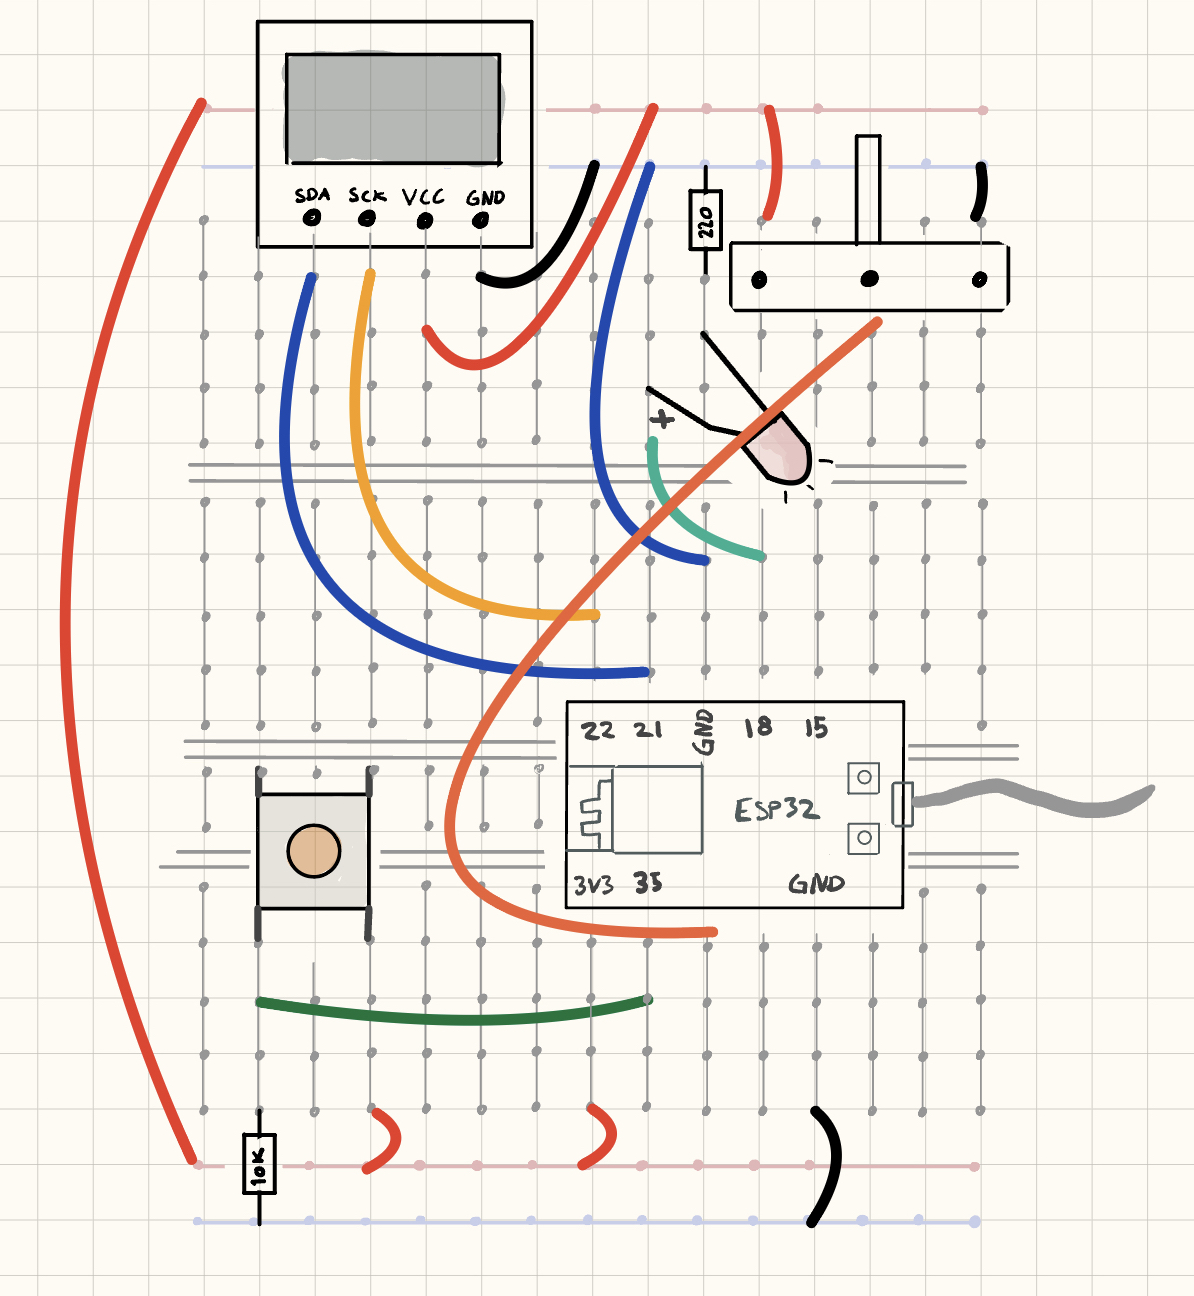 SDA SCK VCC GND
220
+
22 21 GND 18 15
ESP32
3V3 35 GND
10K